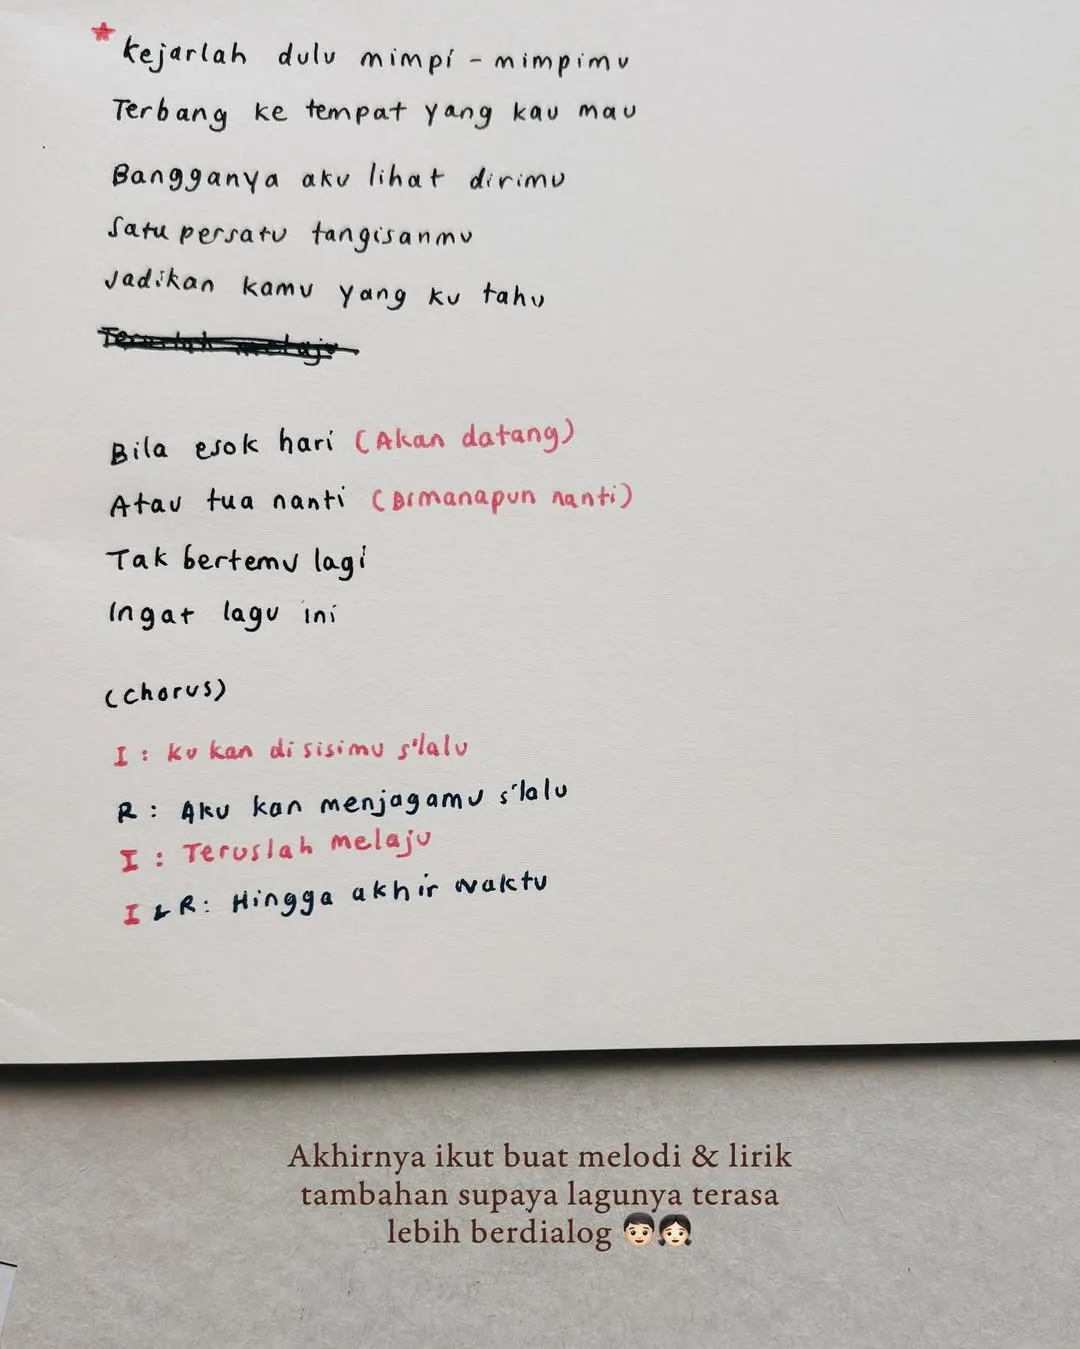 Kejarlah dulu mimpi - mimpimu
Terbang ke tempat yang kau mau
Bangganya aku lihat dirimu
Satu persatu tangisanmu
Jadikan kamu yang ku tahu
Teruslah melaju
Bila esok hari (Akan datang)
Atau tua nanti (Dimanapun nanti)
Tak bertemu lagi
Ingat lagu ini
(Chorus)
I : Ku kan di sisimu s'lalu
R : Aku kan menjagamu s'lalu
I : Teruslah melaju
I & R : Hingga akhir waktu
Akhirnya ikut buat melodi & lirik
tambahan supaya lagunya terasa
lebih berdialog 👦🏻👧🏻